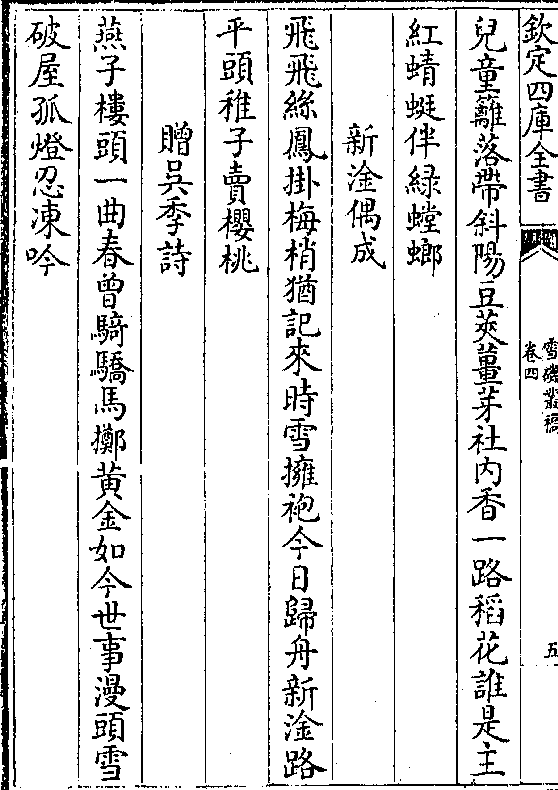 欽定四庫全書
雪磯叢稿
卷四
五
兒童籬落帶斜陽豆莢薑芽社肉香一路稻花誰是主
紅蜻蜓伴綠螳螂
新淦偶成
飛飛絲鳳掛梅梢猶記來時雪擁袍今日歸舟新淦路
平頭稚子賣櫻桃
贈吳季詩
燕子樓頭一曲春曾騎驕馬擲黃金如今世事漫頭雪
破屋孤燈忍凍吟